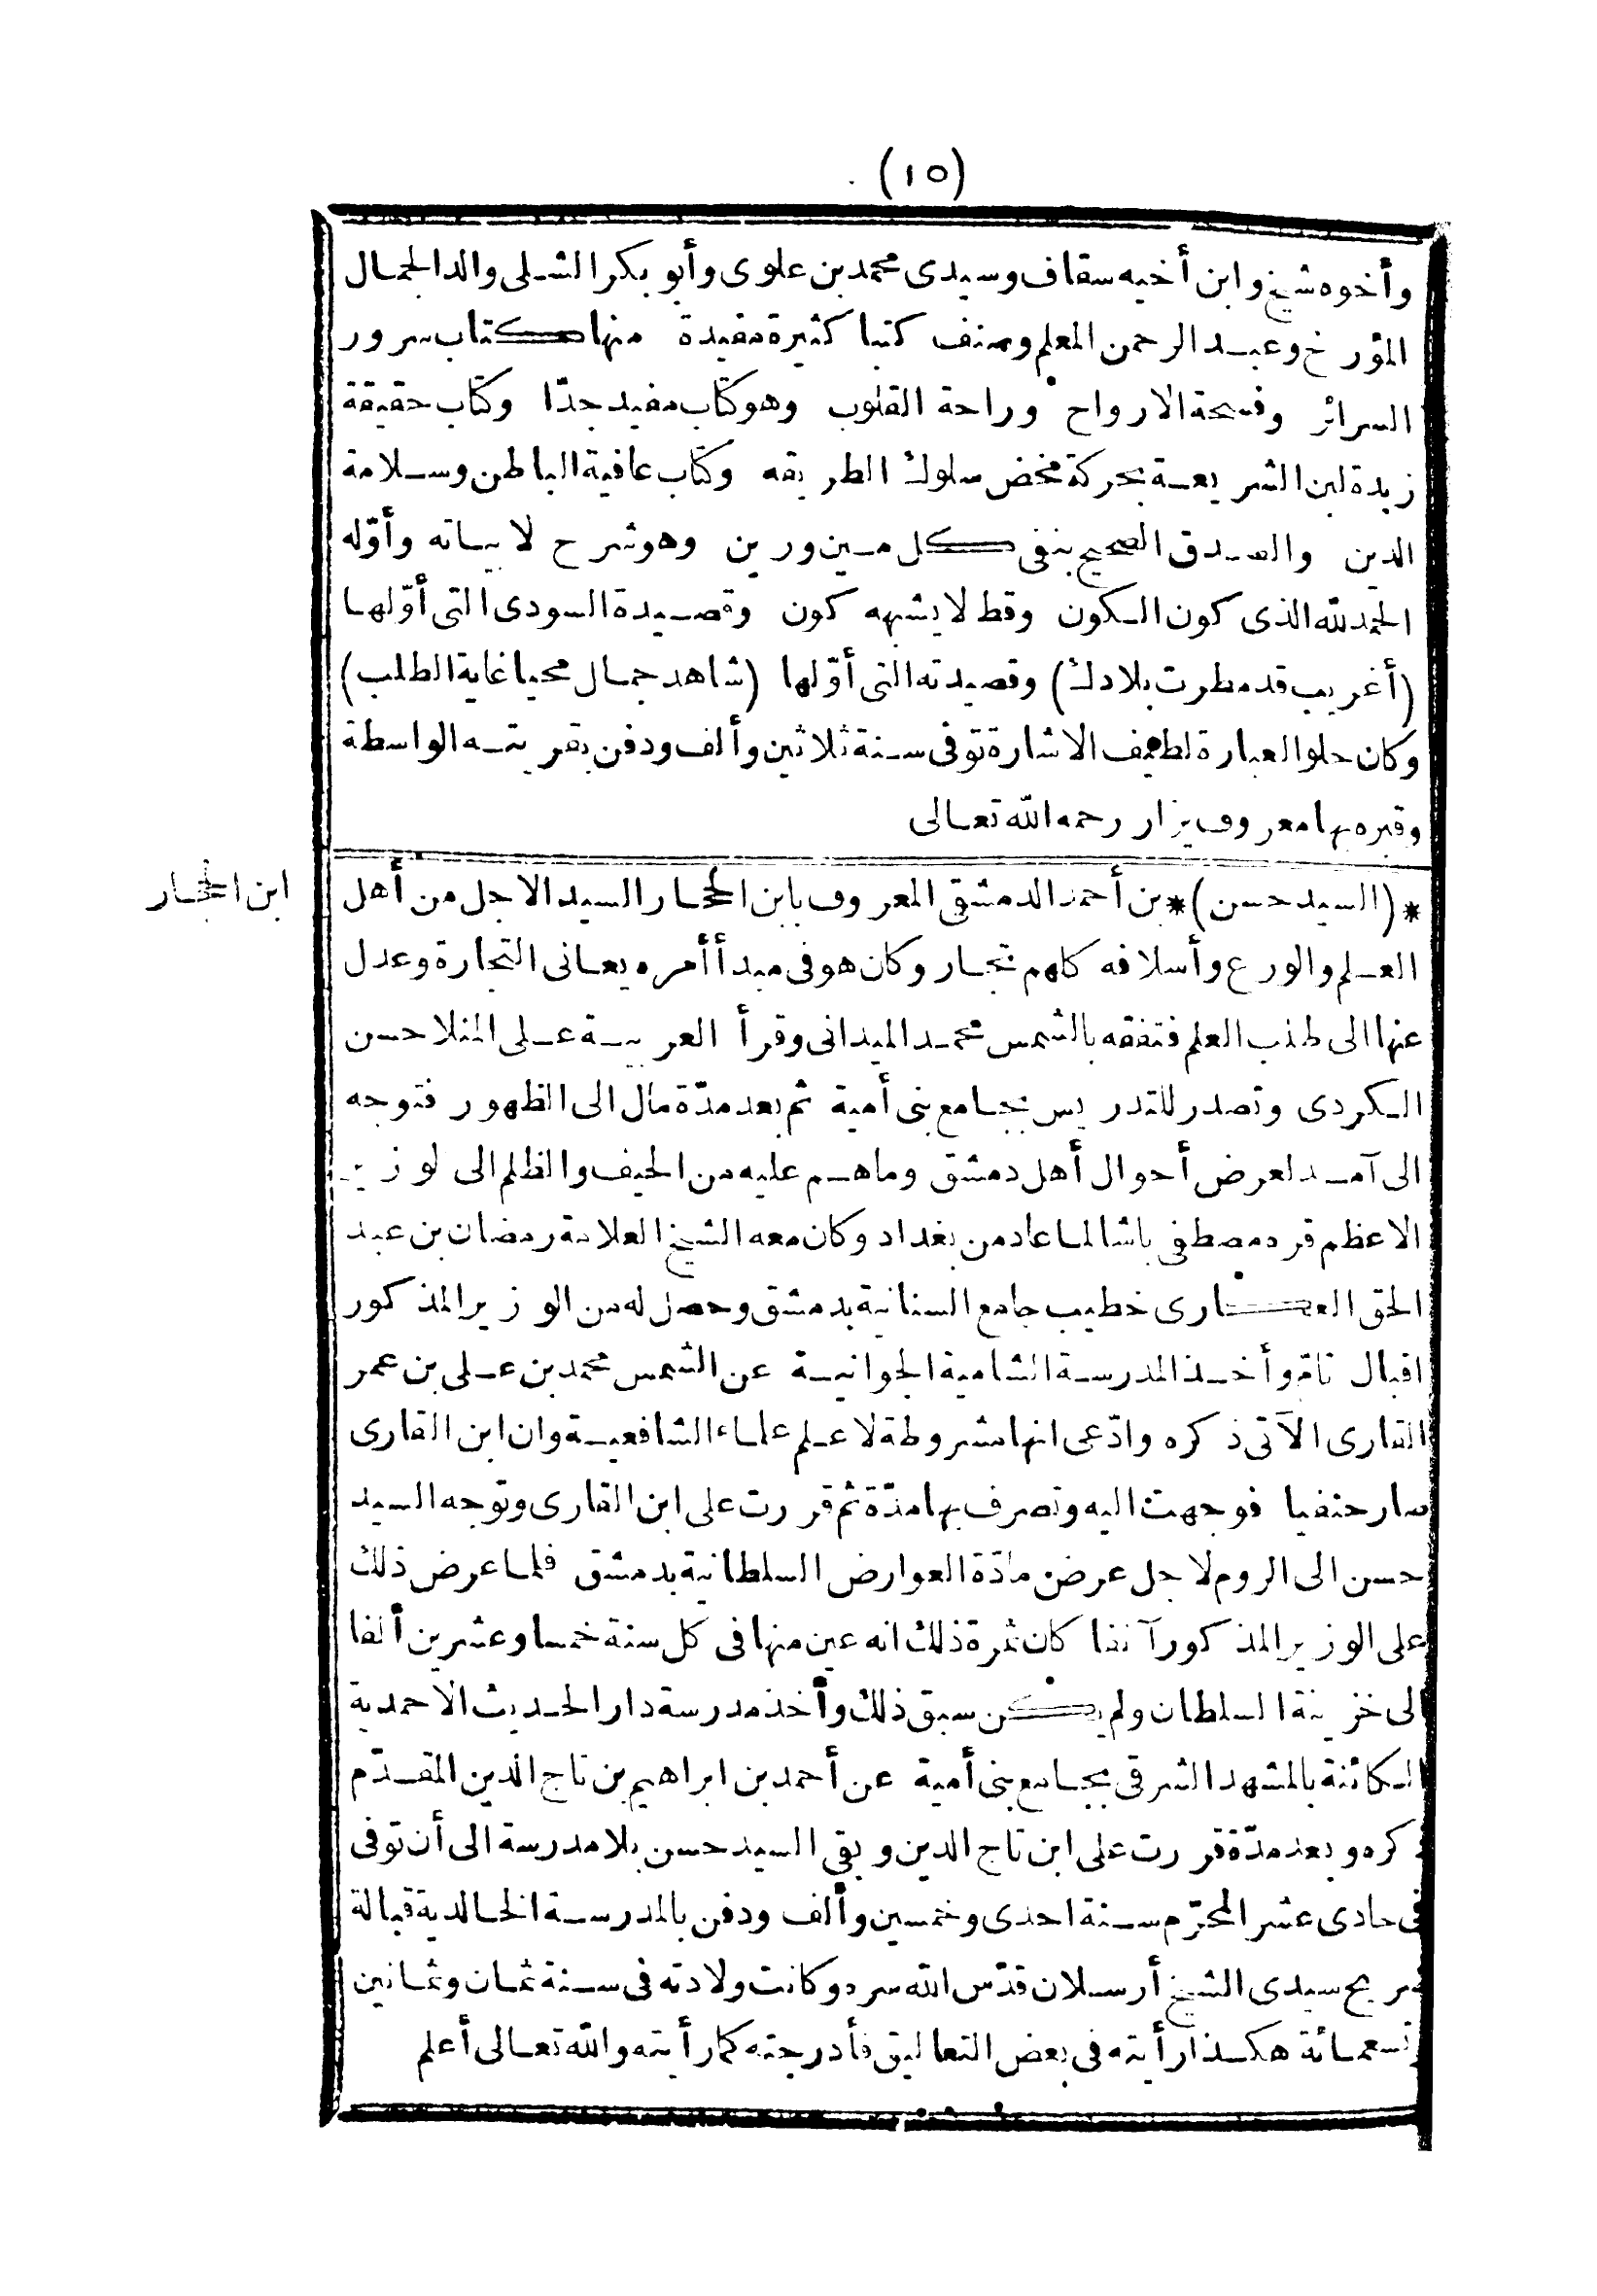 (١٥)
وأخوه شيخ وابن أخيه سقاف وسيدى محمد بن علوى وأبو بكر الشلى والد الجمال
المؤرخ وعبد الرحمن المعلم وصنف كتبا كثيرة مفيدة منها كتاب سرور
السرائر وفسحة الارواح وراحة القلوب وهو كتاب مفيد جدّا وكتاب حقيقة
زبدة لبن الشريعة بحركة مخض سلوك الطريقه وكتاب عافية الباطن وسلامة
الدين والصدق الصحيح بنفى كل مين ورين وهو شرح لابياته وأوّله
الحمد لله الذى كون الكون وقط لا يشبهه كون وقصيدة السودى التى أوّلها
(أغريب قد مطرت بلادك) وقصيدته التى أوّلها (شاهد جمال محيا غاية الطلب)
وكان حلو العبارة لطيف الاشارة توفى سنة ثلاثين وألف ودفن بقريته الواسطة
وقبره بها معروف يزار رحمه الله تعالى
ابن الحجار
*(السيد حسن)* بن أحمد الدمشقى المعروف بابن الحجار السيد الاجل من أهل
العلم والورع وأسلافه كلهم تجار وكان هو فى مبدأ أمره يعانى التجارة وعدل
عنها الى طلب العلم فتفقه بالشمس محمد الميدانى وقرأ العربية على المنلا حسن
الكردى وتصدر للتدريس بجامع بنى أمية ثم بعد مدّة مال الى الظهور فتوجه
الى آمد لعرض أحوال أهل دمشق وما هم عليه من الحيف والظلم الى لوزير
الاعظم قره مصطفى باشا لما عاد من بغداد وكان معه الشيخ العلامة رمضان بن عبد
الحق العكارى خطيب جامع السنانية بدمشق وحصل له من الوزير المذكور
اقبال تامّ وأخذ المدرسة الشامية الجوانية عن الشمس محمد بن على بن عمر
القارى الآتى ذكره وادّعى انها مشروطة لاعلم علماء الشافعية وان ابن القارى
صار حنفيا فوجهت اليه وتصرف بها مدّة ثم قررت على ابن القارى وتوجه السيد
حسن الى الروم لاجل عرض مادّة العوارض السلطانية بدمشق فلما عرض ذلك
على الوزير المذكور آنفا كان ثمرة ذلك انه عين منها فى كل سنة خمسا وعشرين ألفا
الى خزينة السلطان ولم يكن سبق ذلك وأخذ مدرسة دار الحديث الاحمدية
الكائنة بالمشهد الشرقى بجامع بنى أمية عن أحمد بن ابراهيم بن تاج الدين المقدّم
ذكره وبعد مدّة قررت على ابن تاج الدين وبقى السيد حسن بلا مدرسة الى أن توفى
فى حادى عشر المحرّم سنة احدى وخمسين وألف ودفن بالمدرسة الخالدية قبالة
ضريح سيدى الشيخ أرسلان قدّس الله سره وكانت ولادته فى سنة ثمان وثمانين
وتسعمائة هكذا رأيته فى بعض التعاليق فأدرجته كما رأيته والله تعالى أعلم